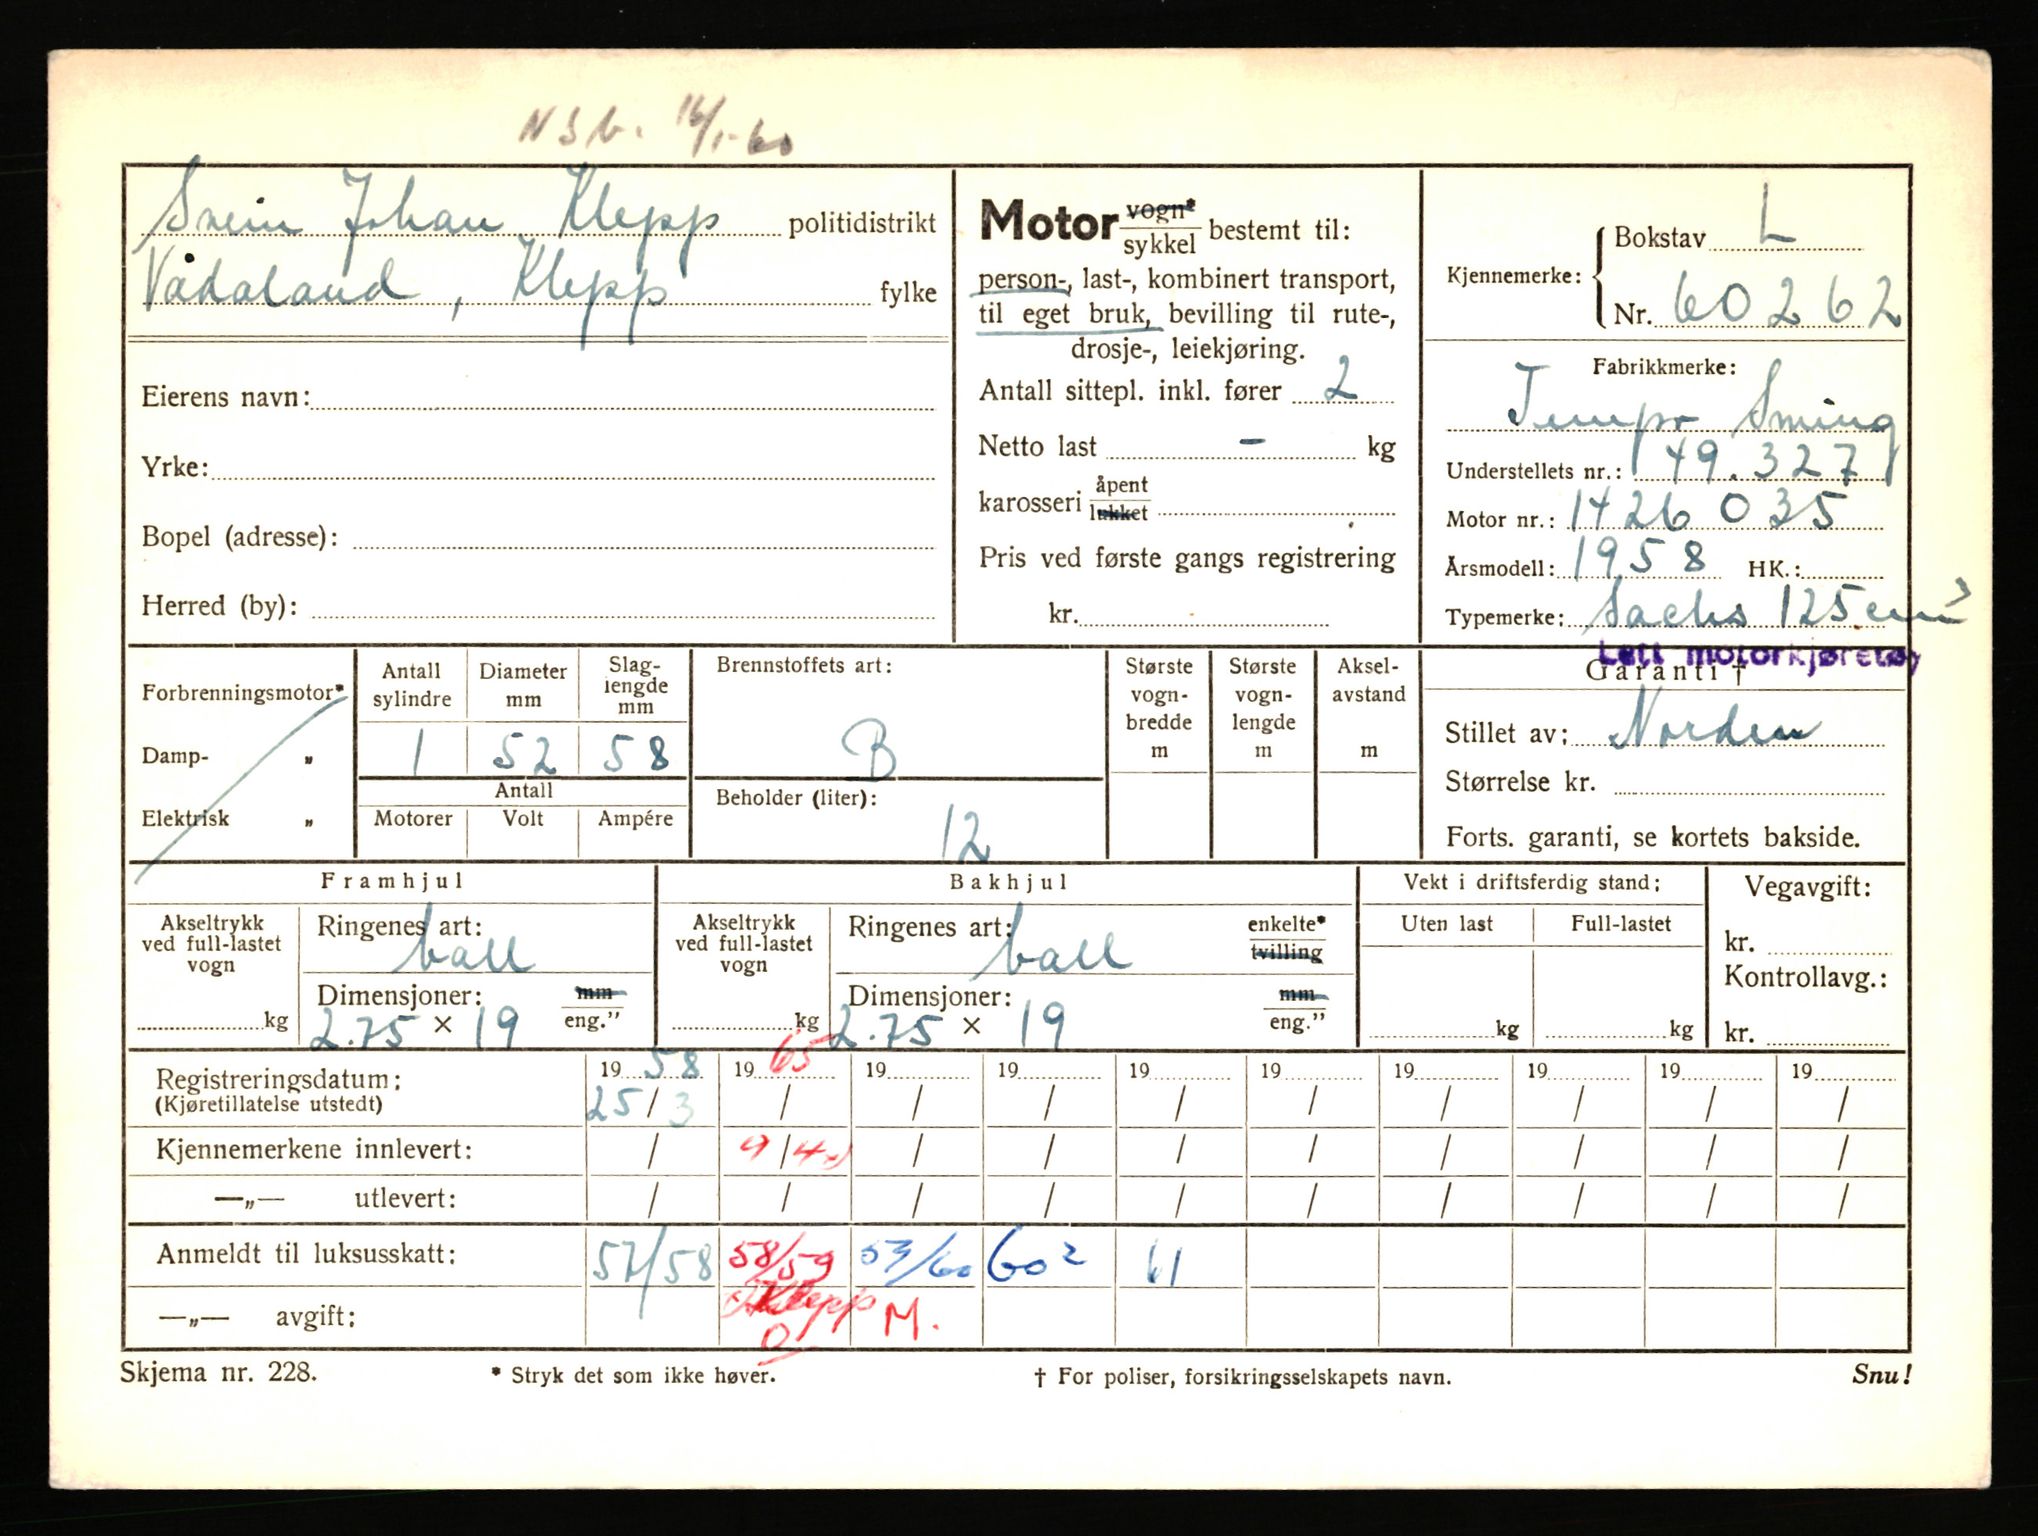 16/1-60
Svein Johan Klepp politidistrikt
Vådaland, Klepp fylke
Eierens navn:
Yrke:
Bopel (adresse):
Herred (by):
Motor vogn* sykkel bestemt til:
person-, last-, kombinert transport,
til eget bruk, bevilling til rute-,
drosje-, leiekjøring.
Antall sittepl. inkl. fører 2
Netto last - kg
karosseri åpent lukket
Pris ved første gangs registrering
kr.
Kjennemerke: Bokstav L
Nr. 60262
Fabrikkmerke:
Tempo Swing
Understellets nr.: 149.327
Motor nr.: 1426035
Årsmodell: 1958 HK.:
Typemerke: Sachs 125 cm³
Lett motorkjøretøy
Garanti †
Stillet av: Norden
Størrelse kr.
Forts. garanti, se kortets bakside.
Forbrenningsmotor*
Damp- „
Elektrisk „
Antall sylindre 1
Diameter mm 52
Slaglengde mm 58
Antall
Motorer Volt Ampére
Brennstoffets art:
B
Beholder (liter):
12
Største vogn-bredde m
Største vogn-lengde m
Aksel-avstand m
Framhjul
Akseltrykk ved full-lastet vogn
kg
Ringenes art:
ball
Dimensjoner: mm
2.75 × 19 eng."
Bakhjul
Akseltrykk ved full-lastet vogn
kg
Ringenes art: enkelte*
ball tvilling
Dimensjoner: mm
2.75 × 19 eng."
Vekt i driftsferdig stand:
Uten last Full-lastet
kg kg
Vegavgift:
kr.
Kontrollavg.:
kr.
Registreringsdatum: 1958 1965 19 19 19 19 19 19 19 19
(Kjøretillatelse utstedt) 25/3 / / / / / / / / /
Kjennemerkene innlevert: / 9/4 / / / / / / / /
—„— utlevert: / / / / / / / / / /
Anmeldt til luksusskatt: 57/58 58/59 59/60 60² 61
—„— avgift: Klepp M.
0
Skjema nr. 228. * Stryk det som ikke høver. † For poliser, forsikringsselskapets navn. Snu!